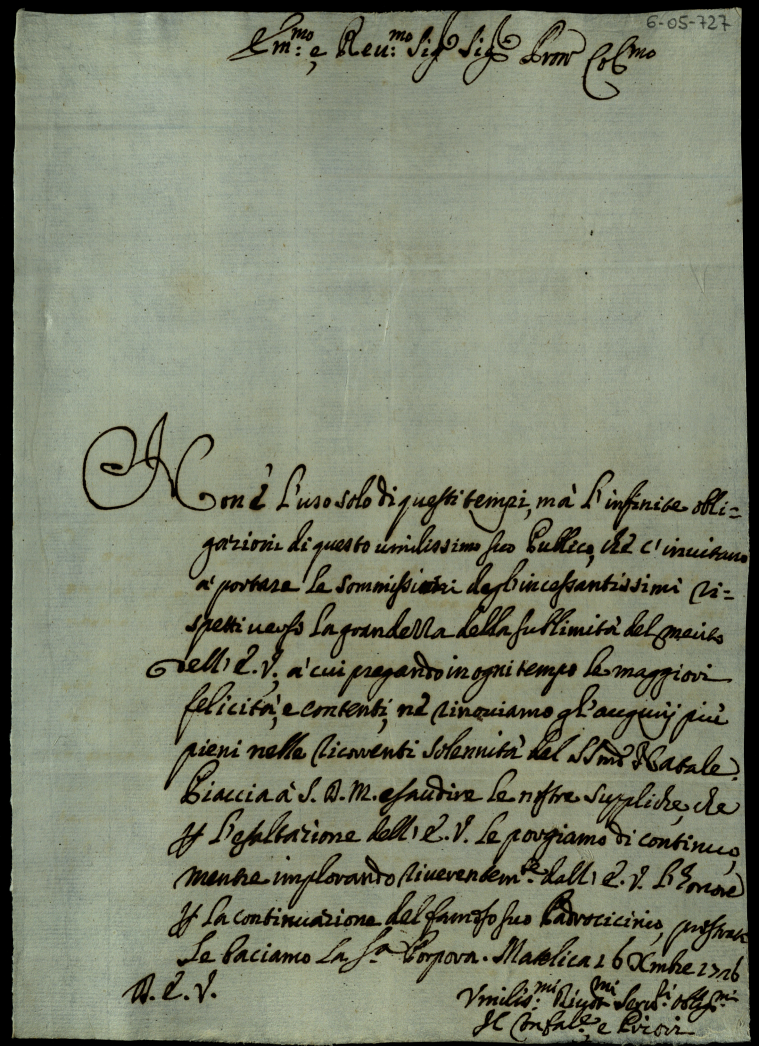 6-05-727
Em:mo e Reu:mo Sig Sig Pron Col:mo
Non è l'uso solo di questi tempi, mà l'infinite obli=
gazioni di questo umilissimo suo Publico, chè c'inuitano
à portare le sommissioni degl'incessantissimi ri=
spetti uerso la grandezza della sublimità del merito
dell'E.V., à cui pregando in ogni tempo le maggiori
felicità, e contenti, nè rinouiamo gl'augurij più
pieni nelle ricorrenti solennità del SSmo Natale.
Piaccia à S. D. M. esaudire le nostre suppliche, che
p l'esaltazione dell'E.V. le porgiamo di continuo,
mentre implorando riuerendem:te dall'E.V. l'honore
p la continuazione del famoso suo Padrocicinio, prostrati
le baciamo la S:a Porpora. Matelica 16 Xmbre 1726
D. E. V.
Vmilis:mi Diuot:mi Seru:ri oblig:mi
Il Confal:re, e Priori